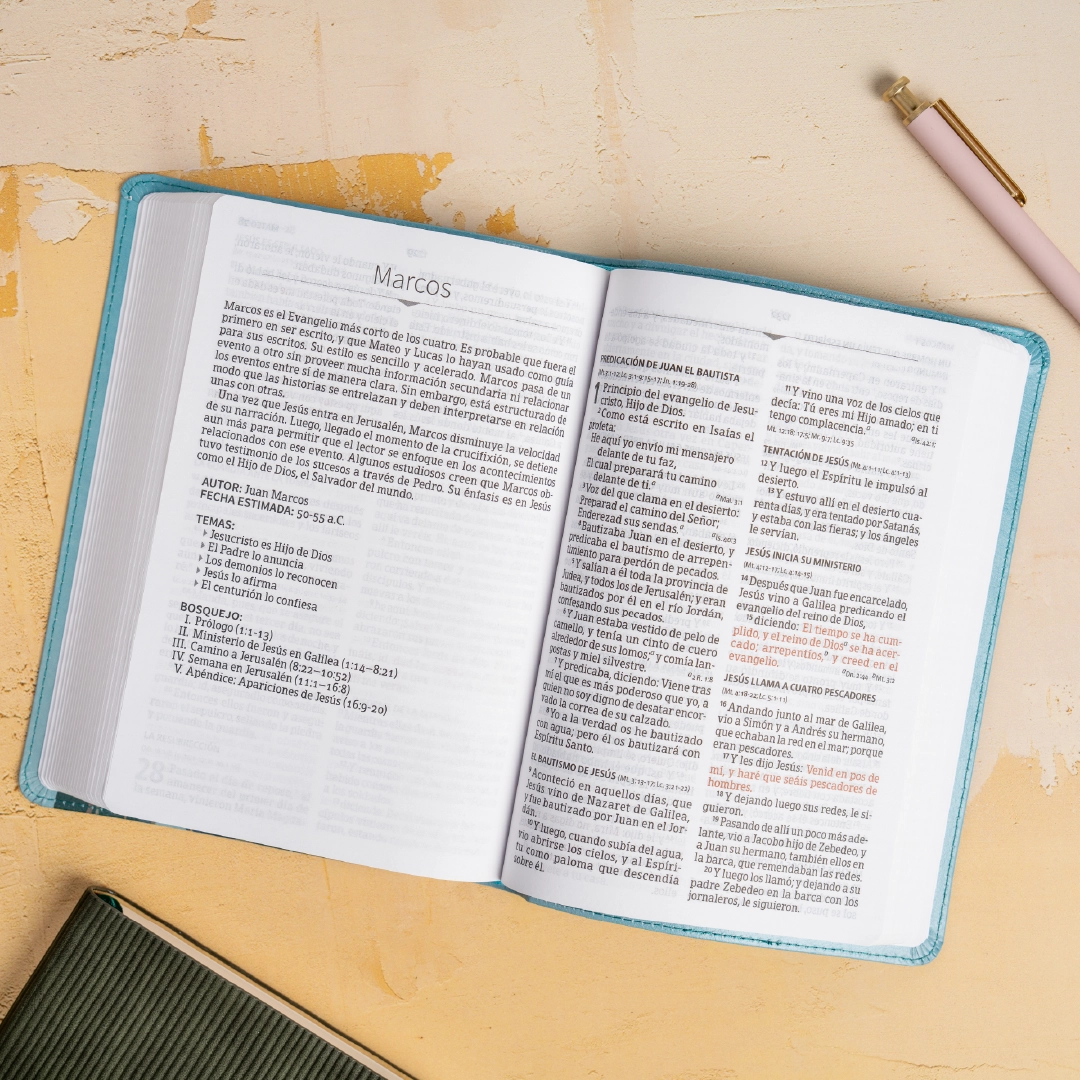 Marcos
Marcos es el Evangelio más corto de los cuatro. Es probable que fuera el
primero en ser escrito, y que Mateo y Lucas lo hayan usado como guía
para sus escritos. Su estilo es sencillo y acelerado. Marcos pasa de un
evento a otro sin proveer mucha información secundaria ni relacionar
los eventos entre sí de manera clara. Sin embargo, está estructurado de
modo que las historias se entrelazan y deben interpretarse en relación
unas con otras.
Una vez que Jesús entra en Jerusalén, Marcos disminuye la velocidad
de su narración. Luego, llegado el momento de la crucifixión, se detiene
aun más para permitir que el lector se enfoque en los acontecimientos
relacionados con ese evento. Algunos estudiosos creen que Marcos ob-
tuvo testimonio de los sucesos a través de Pedro. Su énfasis es en Jesús
como el Hijo de Dios, el Salvador del mundo.
AUTOR: Juan Marcos
FECHA ESTIMADA: 50-55 a.C.
TEMAS:
Jesucristo es Hijo de Dios
El Padre lo anuncia
Los demonios lo reconocen
Jesús lo afirma
El centurión lo confiesa
BOSQUEJO:
I. Prólogo (1:1-13)
II. Ministerio de Jesús en Galilea (1:14–8:21)
III. Camino a Jerusalén (8:22–10:52)
IV. Semana en Jerusalén (11:1–16:8)
V. Apéndice: Apariciones de Jesús (16:9-20)
PREDICACIÓN DE JUAN EL BAUTISTA
(Mt.3:1-12; Lc.3:1-9;15-17; Jn. 1:19-28)
1 Principio del evangelio de Jesu-
cristo, Hijo de Dios.
2 Como está escrito en Isaías el
profeta:
He aquí yo envío mi mensajero
delante de tu faz,
El cual preparará tu camino
delante de ti.a
a Mal. 3:1
3 Voz del que clama en el desierto:
Preparad el camino del Señor;
Enderezad sus sendas.a
a Is. 40:3
4 Bautizaba Juan en el desierto, y
predicaba el bautismo de arrepen-
timiento para perdón de pecados.
5 Y salían a él toda la provincia de
Judea, y todos los de Jerusalén; y eran
bautizados por él en el río Jordán,
confesando sus pecados.
6 Y Juan estaba vestido de pelo de
camello, y tenía un cinto de cuero
alrededor de sus lomos;a y comía lan-
gostas y miel silvestre.
a 2 R. 1:8
7 Y predicaba, diciendo: Viene tras
mí el que es más poderoso que yo, a
quien no soy digno de desatar encor-
vado la correa de su calzado.
8 Yo a la verdad os he bautizado
con agua; pero él os bautizará con
Espíritu Santo.
EL BAUTISMO DE JESÚS (Mt. 3:13-17; Lc. 3:21-22)
9 Aconteció en aquellos días, que
Jesús vino de Nazaret de Galilea,
y fue bautizado por Juan en el Jor-
dán.
10 Y luego, cuando subía del agua,
vio abrirse los cielos, y al Espíri-
tu como paloma que descendía
sobre él.
11 Y vino una voz de los cielos que
decía: Tú eres mi Hijo amado; en ti
tengo complacencia.a
a Is. 42:1;
Mt. 12:18; 17:5; Mr. 9:7; Lc. 9:35
TENTACIÓN DE JESÚS (Mt. 4:1-11; Lc. 4:1-13)
12 Y luego el Espíritu le impulsó al
desierto.
13 Y estuvo allí en el desierto cua-
renta días, y era tentado por Satanás,
y estaba con las fieras; y los ángeles
le servían.
JESÚS INICIA SU MINISTERIO
(Mt. 4:12-17; Lc. 4:14-15)
14 Después que Juan fue encarcelado,
Jesús vino a Galilea predicando el
evangelio del reino de Dios,
15 diciendo: El tiempo se ha cum-
plido, y el reino de Diosa se ha acer-
cado; arrepentíos,b y creed en el
evangelio.
a Dn. 2:44 b Mt. 3:2
JESÚS LLAMA A CUATRO PESCADORES
(Mt. 4:18-22; Lc. 5:1-11)
16 Andando junto al mar de Galilea,
vio a Simón y a Andrés su hermano,
que echaban la red en el mar; porque
eran pescadores.
17 Y les dijo Jesús: Venid en pos de
mí, y haré que seáis pescadores de
hombres.
18 Y dejando luego sus redes, le si-
guieron.
19 Pasando de allí un poco más ade-
lante, vio a Jacobo hijo de Zebedeo, y
a Juan su hermano, también ellos en
la barca, que remendaban las redes.
20 Y luego los llamó; y dejando a su
padre Zebedeo en la barca con los
jornaleros, le siguieron.